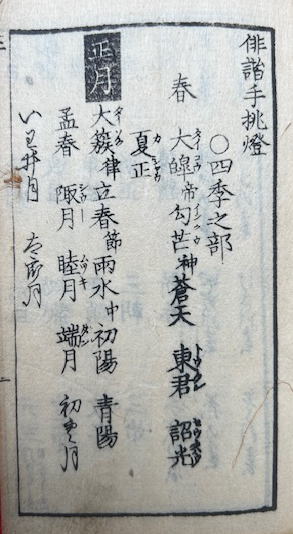 俳諧手挑燈
〇四季之部
春 大皥帝勾芒神蒼天 東君 韶光
夏正
正月 大簇律立春節雨水中初陽 青陽
孟春 陬月 睦月 端月 初空月
太郎月